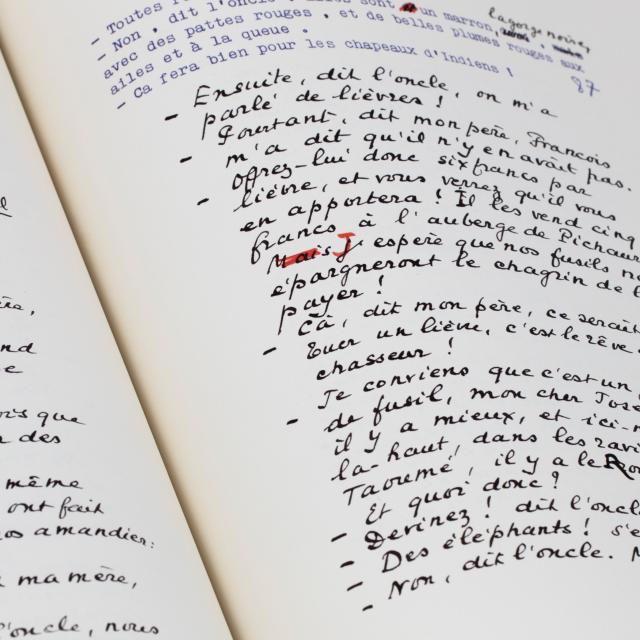 ère,
and
e
ors que
n des
même
ont fait
os amandier:
ma mère,
l'oncle, nous
- Toutes
- Non, dit l'oncle, sont un marron, la gorge noire,
avec des pattes rouges, et de belles plumes rouges aux
ailes et à la queue.
- Ca fera bien pour les chapeaux d'Indiens !
87
- Ensuite, dit l'oncle, on m'a
parlé de lièvres !
- Pourtant, dit mon père, François
m'a dit qu'il n'y en avait pas.
- Offrez-lui donc six francs par
lièvre, et vous verrez qu'il vous
en apportera ! Il les vend cinq
francs à l'auberge de Pichaur
Mais J'espère que nos fusils n
épargneront le chagrin de l
payer !
- Ca, dit mon père, ce serait
tuer un lièvre, c'est le rêve
chasseur !
- Je conviens que c'est un
de fusil, mon cher Jos
il y a mieux, et ici-m
la-haut, dans les ravi
Taoumé, il y a le Ro
- Et quoi donc ?
- Devinez ! dit l'oncl
- Des éléphants ! s'é
- Non, dit l'oncle. N